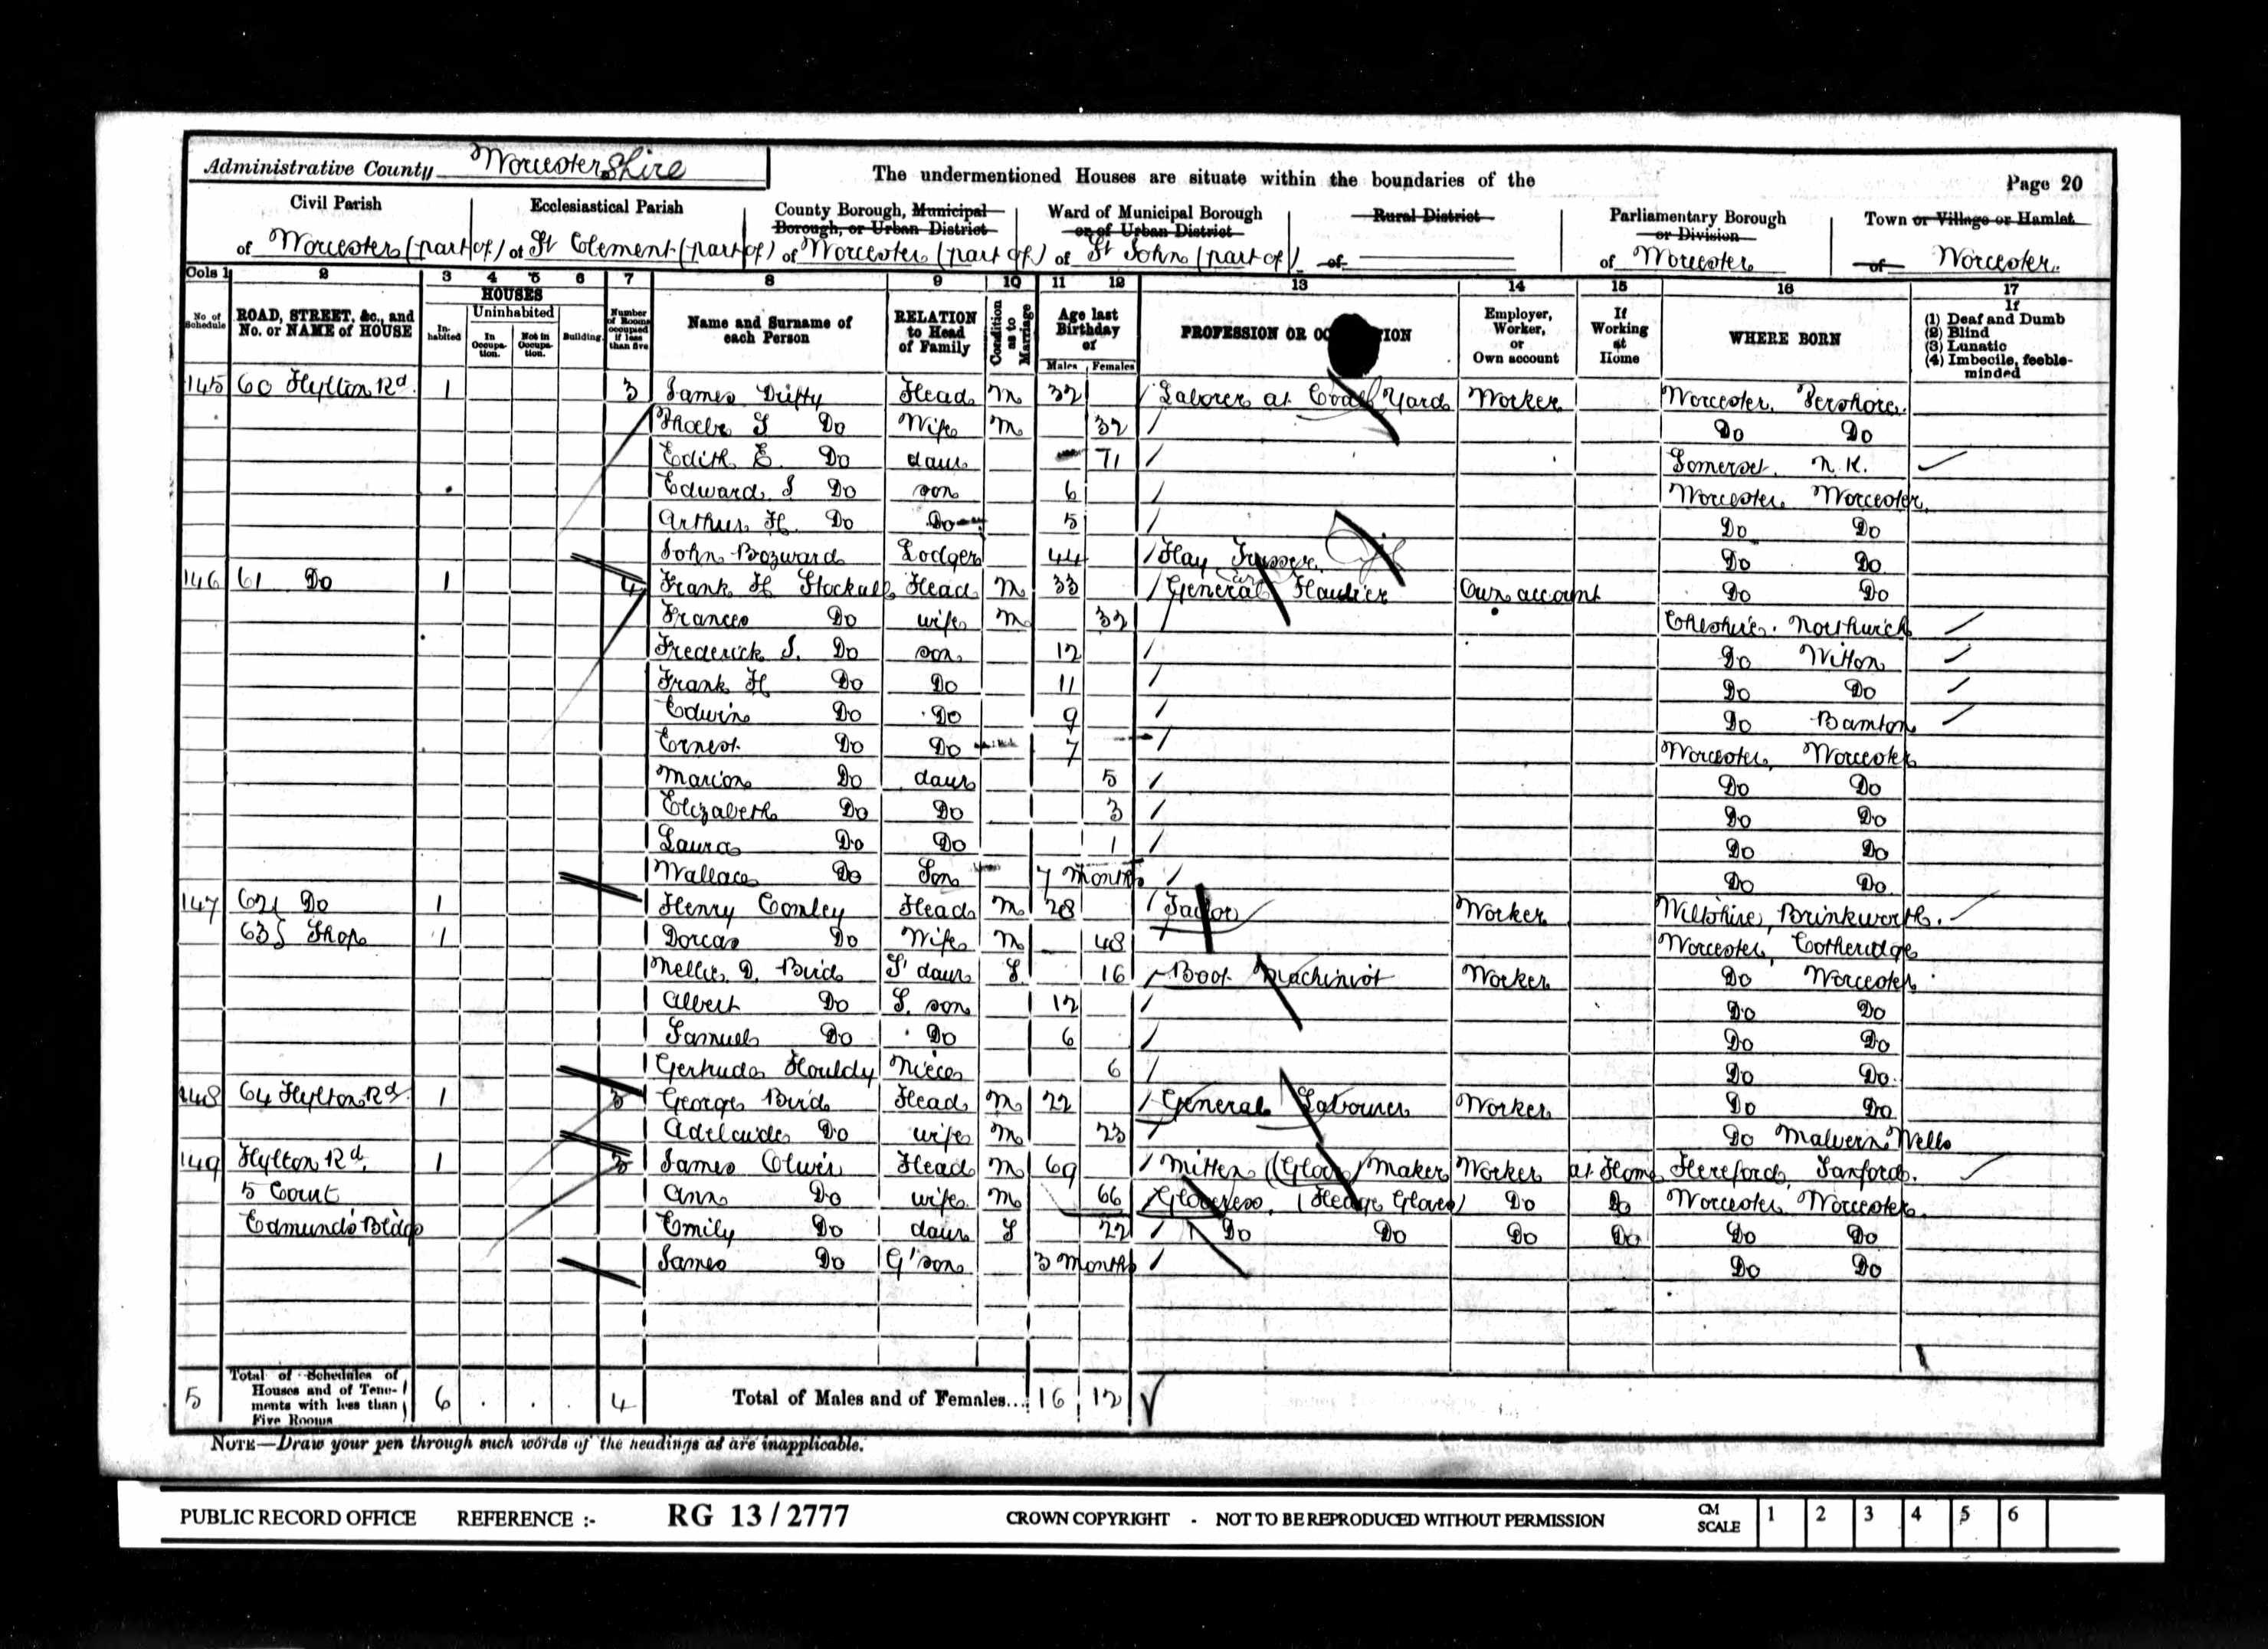 Administrative County Worcestershire
The undermentioned Houses are situate within the boundaries of the
Page 20
Civil Parish
of Worcester (part of)
Ecclesiastical Parish
of St Clement (part of)
County Borough, Municipal
Borough, or Urban District
of Worcester (part of)
Ward of Municipal Borough
or of Urban District
of St John (part of)
Rural District
of
Parliamentary Borough
or Division
of Worcester
Town or Village or Hamlet
of Worcester
Cols 1 2 3 4 5 6 7 8 9 10 11 12 13 14 15 16 17
No of Schedule
ROAD, STREET, &c., and No. or NAME of HOUSE
HOUSES
In-habited
Uninhabited
In Occupa-tion.
Not in Occupa-tion.
Building.
Number of Rooms occupied if less than five
Name and Surname of each Person
RELATION to Head of Family
Condition as to Marriage
Age last Birthday of
Males Females
PROFESSION OR OC TION
Employer, Worker, or Own account
If Working at Home
WHERE BORN
If
(1) Deaf and Dumb
(2) Blind
(3) Lunatic
(4) Imbecile, feeble-minded
145 60 Hylton Rd. 1 3 James Head M 32 Laborer at Coal Yard Worker Worcester, Pershore
Phoebe S Do Wife M 32 Do Do
Edith E. Do daur 71 Somerset N.K.
Edward J Do son 6 Worcester Worcester
Arthur H. Do Do 5 Do Do
John Bozward Lodger 44 Hay Trusser Do Do
146 61 Do 1 4 Frank H Stockall Head M 33 General Haulier Own account Do Do
Frances Do wife M 32 Cheshire Northwich
Frederick J. Do son 12 Do Witton
Frank H Do Do 11 Do Do
Edwin Do Do 9 Do Barnton
Ernest Do Do 7 Worcester, Worcester
Marion Do daur 5 Do Do
Elizabeth Do Do 3 Do Do
Laura Do Do 1 Do Do
Wallace Do Son 7 months Do Do
147 62 Do 1 Henry Comley Head M 28 Tailor Worker Wiltshire, Brinkworth.
63 Shop 1 Dorcas Do Wife M 48 Worcester, Cotheridge
Nellie D. Bird S' daur S 16 Boot Machinist Worker Do Worcester
Albert Do S. son 12 Do Do
Samuel Do Do 6 Do Do
Gertrude Houldy Niece 6 Do Do.
148 64 Hylton Rd. 1 3 George Bird Head M 22 General Labourer Worker Do Do
Adelaide Do wife M 23 Do Malvern Wells
149 Hylton Rd. 1 3 James Oliver Head M 69 Mitten (Glove) Maker Worker at Home Hereford,
5 Court Ann Do wife M 66 Gloveress (Hedge Gloves) Do Do Worcester Worcester
Edmunds Bldgs Emily Do daur S 22 Do Do Do Do Do Do
James Do G'son 3 months Do Do
5 Total of Schedules of Houses and of Tene-ments with less than Five Rooms 6 4 Total of Males and of Females... 16 12
NOTE—Draw your pen through such words of the headings as are inapplicable.
PUBLIC RECORD OFFICE REFERENCE :- RG 13 / 2777 CROWN COPYRIGHT - NOT TO BE REPRODUCED WITHOUT PERMISSION CM SCALE 1 2 3 4 5 6